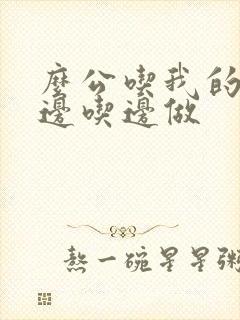 麼公喫我的
邊喫邊做
熬一碗星星粥